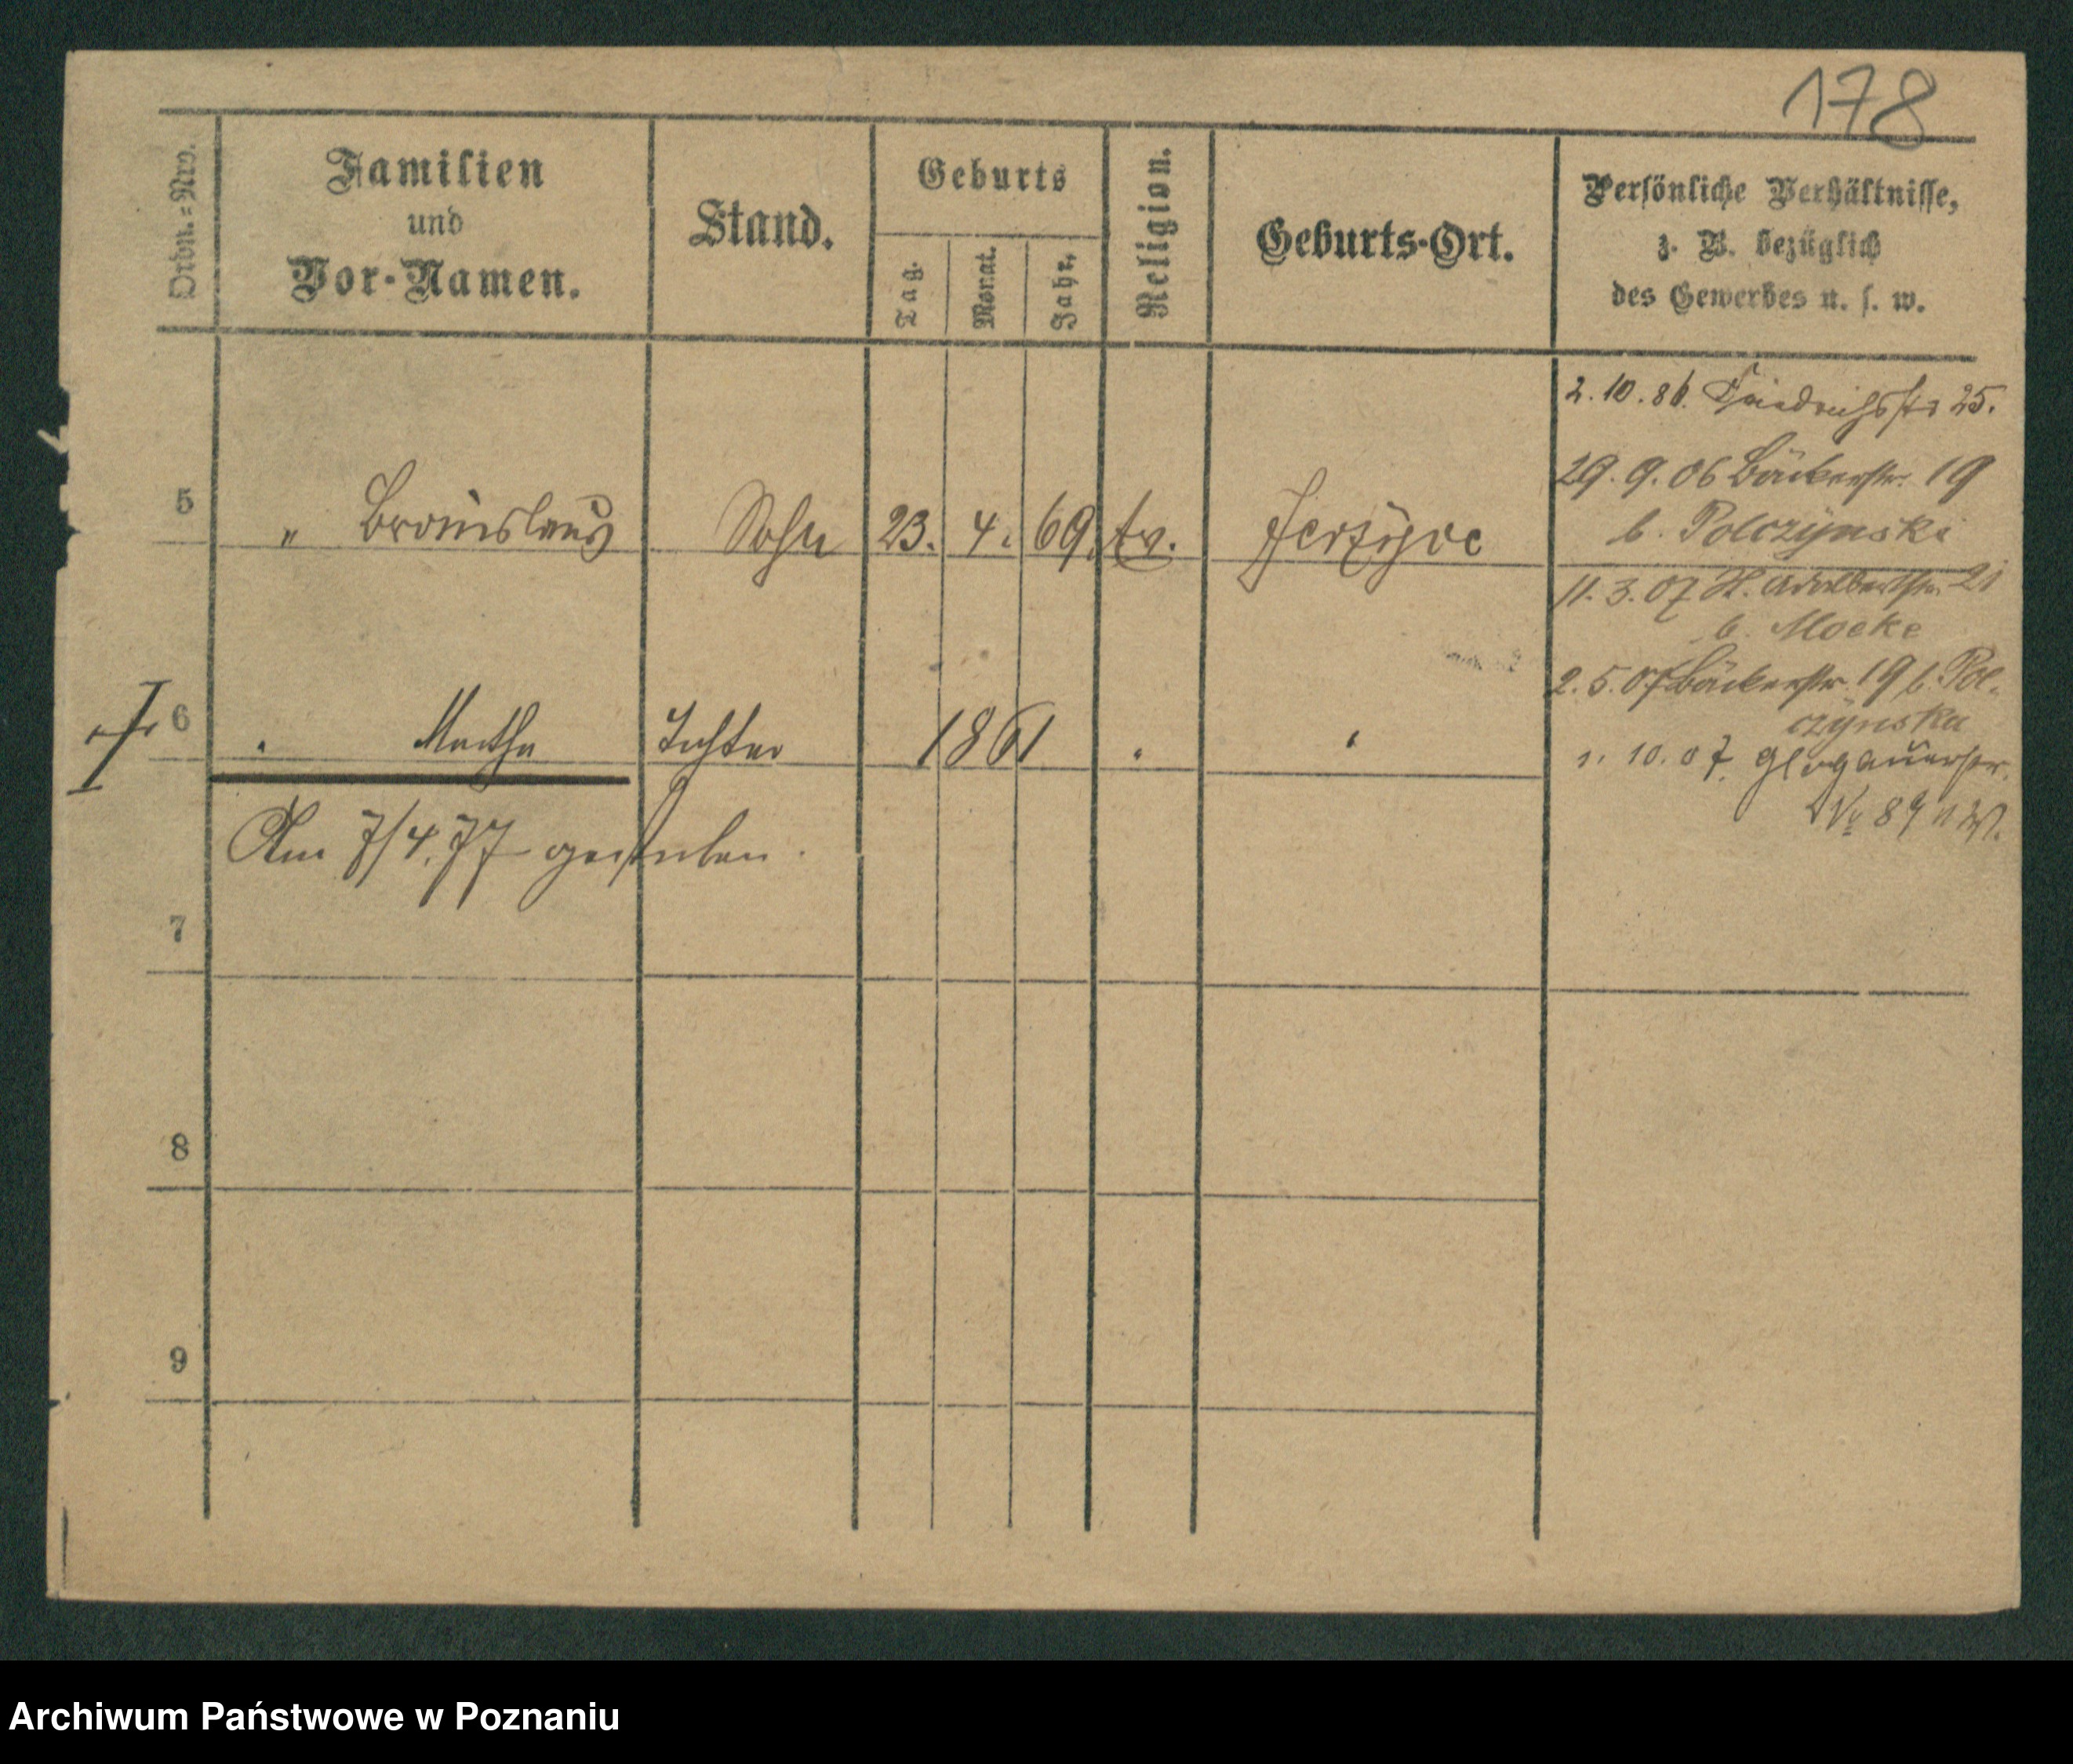 178
Ordn.=Nro.
Familien
und
Vor-Namen.
Stand.
Geburts
Tag.
Monat.
Jahr.
Religion.
Geburts-Ort.
Persönliche Verhältnisse,
z. B. bezüglich
des Gewerbes u. s. w.
2. 10. 86. Friedrichstr 25.
29. 9. 06 Bäckerstr. 19
b. Polczynski
5 " Bronislaus Sohn 23. 4. 69. Jerzyce
11. 3. 07 St. Adalbertstr. 21
b. Mocke
2. 5. 07 Bäckerstr. 19 b. Pol-
czynska
6 " Martha Tochter 1861 " "
1. 10. 07. Glogauerstr.
No 89
Am 7/4. 77 gestorben.
7
8
9
Archiwum Państwowe w Poznaniu